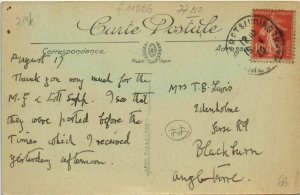 f 11066
Carte Postale
Correspondance
August 17
Thank you very much for the
M.G & Litt Supp. I see that
they were posted before the
Times which I received
yesterday afternoon.
Mrs T B Lewis
Edenholme
Blackburn
Angleterre